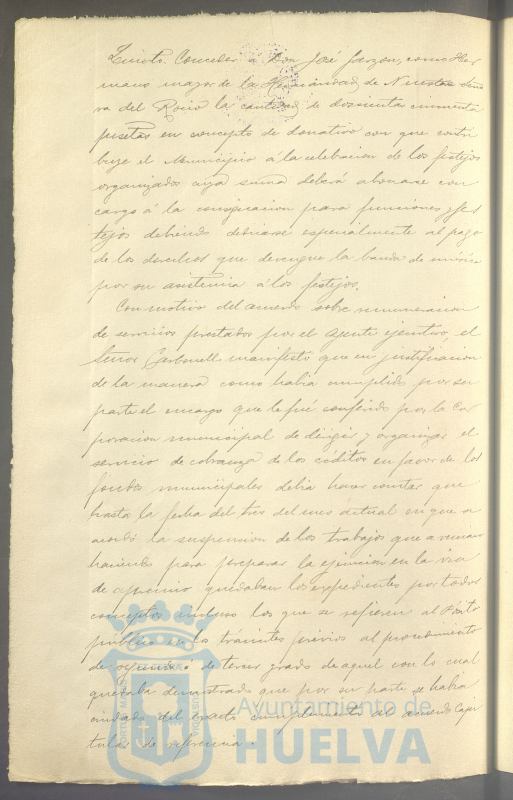 Quinto. Conceder á Don José Garzon, como Her
mano mayor de la Hermandad de Nuestra Seño
ra del Rocio la cantidad de doscientas cincuenta
pesetas en concepto de donativo con que contri
buye el Municipio á la celebracion de los festejos
organizados cuya suma deberá abonarse con
cargo á la consignacion para funciones y fes
tejos debiendo destinarse especialmente al pago
de los derechos que devengue la banda de música
por su asistencia á los festejos.
Con motivo del acuerdo sobre remuneracion
de servicios prestados por el agente ejecutivo, el
Señor Carbonell manifestó que en justificacion
de la manera como habia cumplido por su
parte el encargo que le fué conferido por la Cor
poracion municipal de dirigir y organizar el
servicio de cobranza de los créditos en favor de los
fondos municipales debia hacer constar que
hasta la fecha del tres del mes actual en que se
acordó la suspension de los trabajos que se venian
haciendo para preparar la ejecucion en la via
de apremio quedaban los expedientes por todos
conceptos incluso los que se refieren al Pósito
público en los trámites prévios al procedimiento
de apremio de tercer grado de aquel con lo cual
quedaba demostrado que por su parte se habia
cuidado del exacto cumplimiento al acuerdo Capi
tular de referencia.
Ayuntamiento de
HUELVA